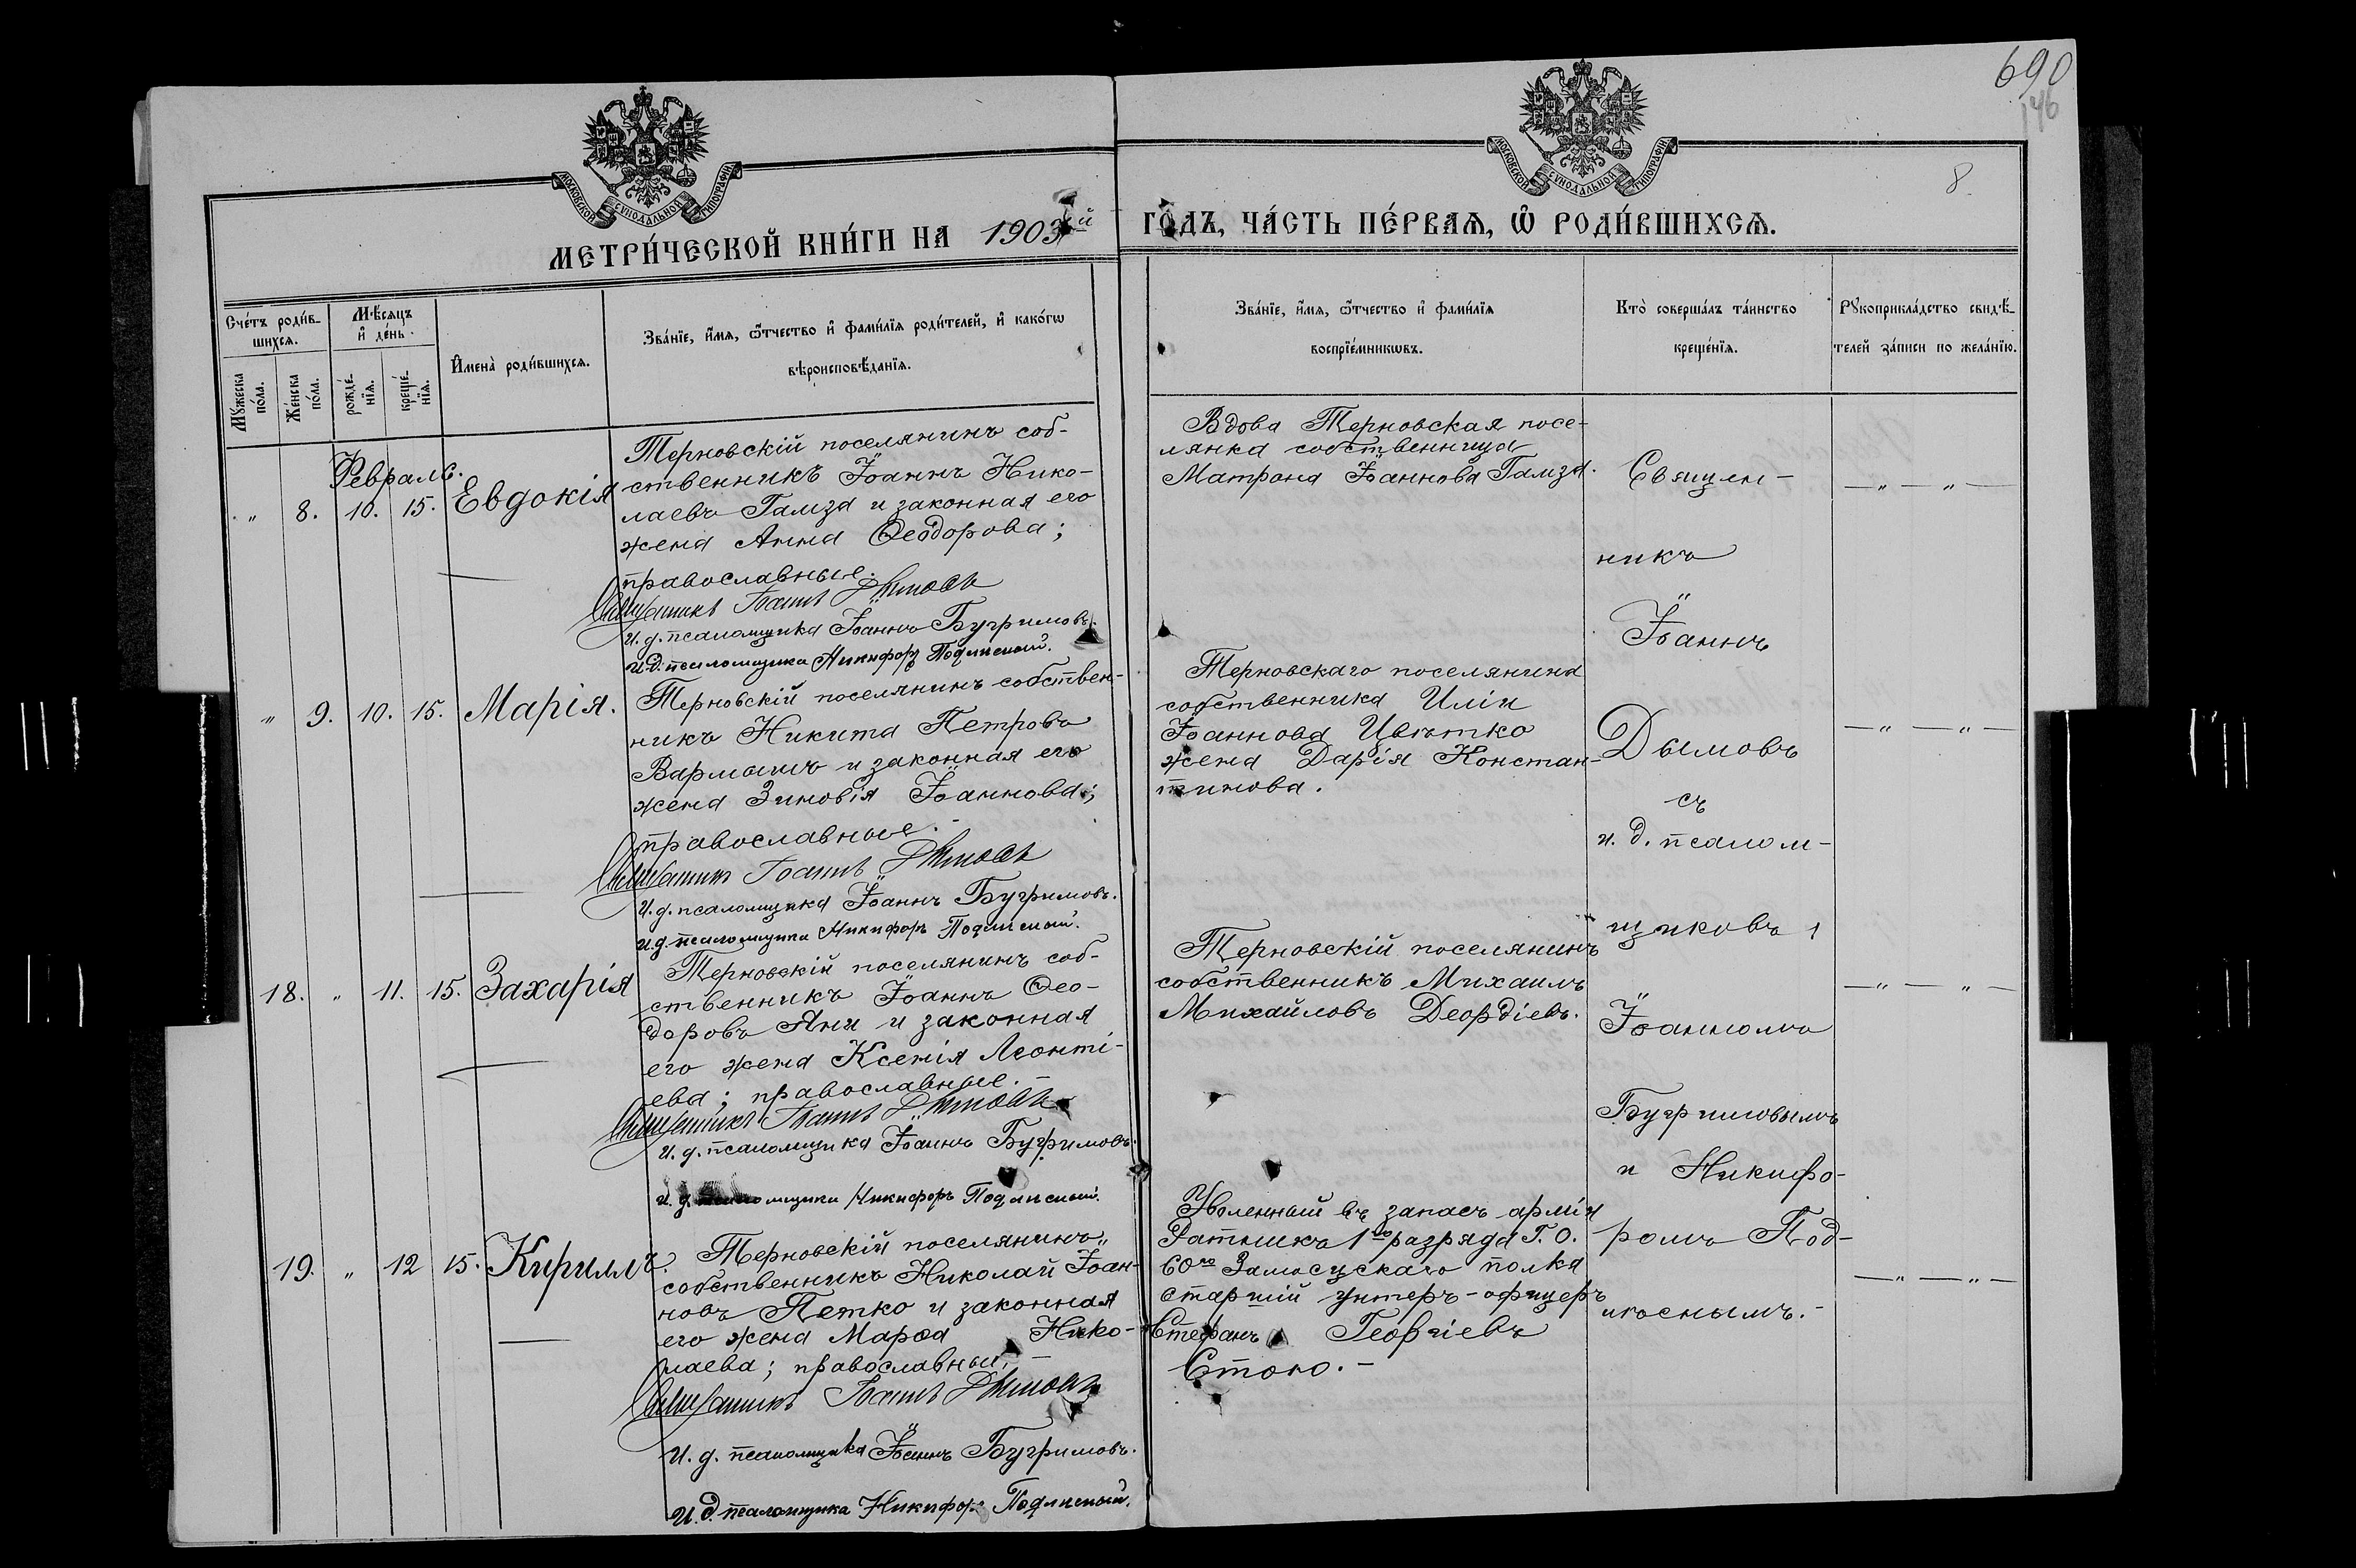 690
146
8
МОСКОВСКОЙ СѴНОДАЛЬНОЙ ТИПОГРАФІИ
МОСКОВСКОЙ СѴНОДАЛЬНОЙ ТИПОГРАФІИ
МЕТРИ́ЧЕСКОЙ КНИ́ГИ НА 1903й
ГО́ДЪ, ЧА́СТЬ ПЕ́РВАѦ, Ѽ РОДИ́ВШИХСѦ.
Сче́тъ роди́в-
шихсѧ.
Мꙋ́жеска по́ла.
Же́нска по́ла.
Мѣ́сѧцъ
и҆ де́нь.
рожде́-
нїѧ.
креще́-
нїѧ.
И҆мена̀ роди́вшихсѧ.
Зва́нїе, и҆́мѧ, ѻ҆́тчество и҆ фами́лїѧ роди́телей, и҆ како́гѡ
вѣроисповѣ́данїѧ.
Зва́нїе, и҆́мѧ, ѻ҆́тчество и҆ фами́лїѧ
воспрїе́мникѡвъ.
Кто̀ соверша́лъ та́инство
креще́нїѧ.
Рꙋкоприкла́дство свидѣ́-
телей за́писи по жела́нїю.
Февраль.
" 8. 10. 15. Евдокія
Терновскій поселянинъ соб-
ственникъ Іоаннъ Нико-
лаевъ Гамза и законная его
жена Анна Ѳеодорова;
православные.
Священникъ Іоаннъ Дымовъ
И. д. псаломщика Іоаннъ Бугримовъ.
И. д. псаломщика Никифоръ Подлисный.
Вдова Терновская посе-
лянка собственница
Матрона Іоаннова Гамза.
Священ-
никъ
Іоаннъ
Дымовъ
съ
и. д. псалом-
щиковъ
Іоанномъ
Бугримовымъ
и Никифо-
ромъ Под-
лиснымъ.-
— " — " —
" 9. 10. 15. Марія.
Терновскій поселянинъ собствен-
никъ Никита Петровъ
Вармашъ и законная его
жена Зиновія Іоаннова;
православные.
Священникъ Іоаннъ Дымовъ
И. д. псаломщика Іоаннъ Бугримовъ.
И. д. псаломщика Никифоръ Подлисный.
Терновскаго поселянина
собственника Иліи
Іоаннова Цвѣтко
жена Дарія Констан-
тинова.
— " — " —
18. " 11. 15. Захарія
Терновскій поселянинъ соб-
ственникъ Іоаннъ Ѳео-
доровъ Яни и законная
его жена Ксенія Леонті-
ева; православные.
Священникъ Іоаннъ Дымовъ
И. д. псаломщика Іоаннъ Бугримовъ.
И. д. псаломщика Никифоръ Подлисный.
Терновскій поселянинъ
собственникъ Михаилъ
Михайловъ Деордіевъ.
— " — " —
19. " 12 15. Кириллъ.
Терновскій поселянинъ
собственникъ Николай Іоан-
новъ Петко и законная
его жена Марѳа Нико-
лаева; православные.
Священникъ Іоаннъ Дымовъ
И. д. псаломщика Іоаннъ Бугримовъ.
И. д. псаломщика Никифоръ Подлисный.
Уволенный въ запасъ арміи
Ратникъ 1го разряда Г. О.
60го Замосцскаго полка
Старшій унтеръ-офицеръ
Стефанъ Георгіевъ
Стоно.-
— " — " —